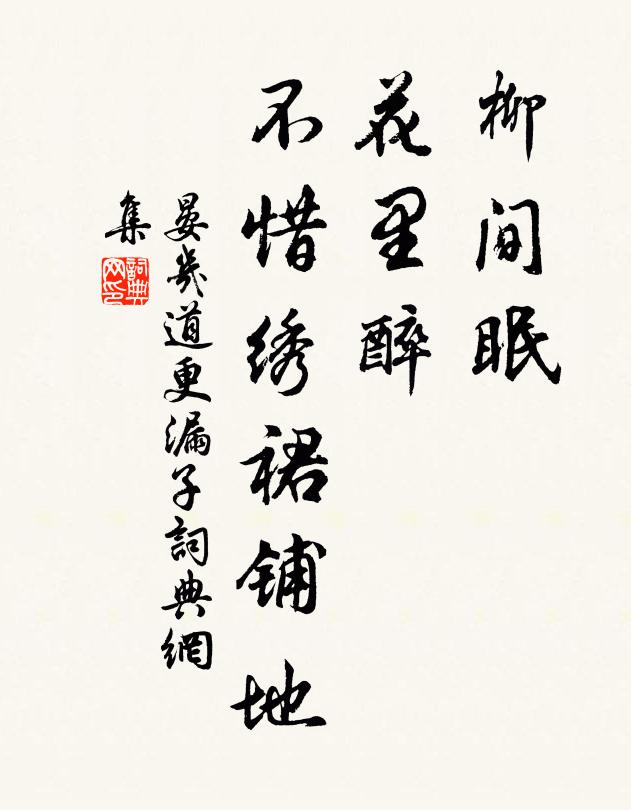 柳间眠
花里醉
不惜绣裙铺地
晏幾道更漏子詞典網
集
詞典
网印